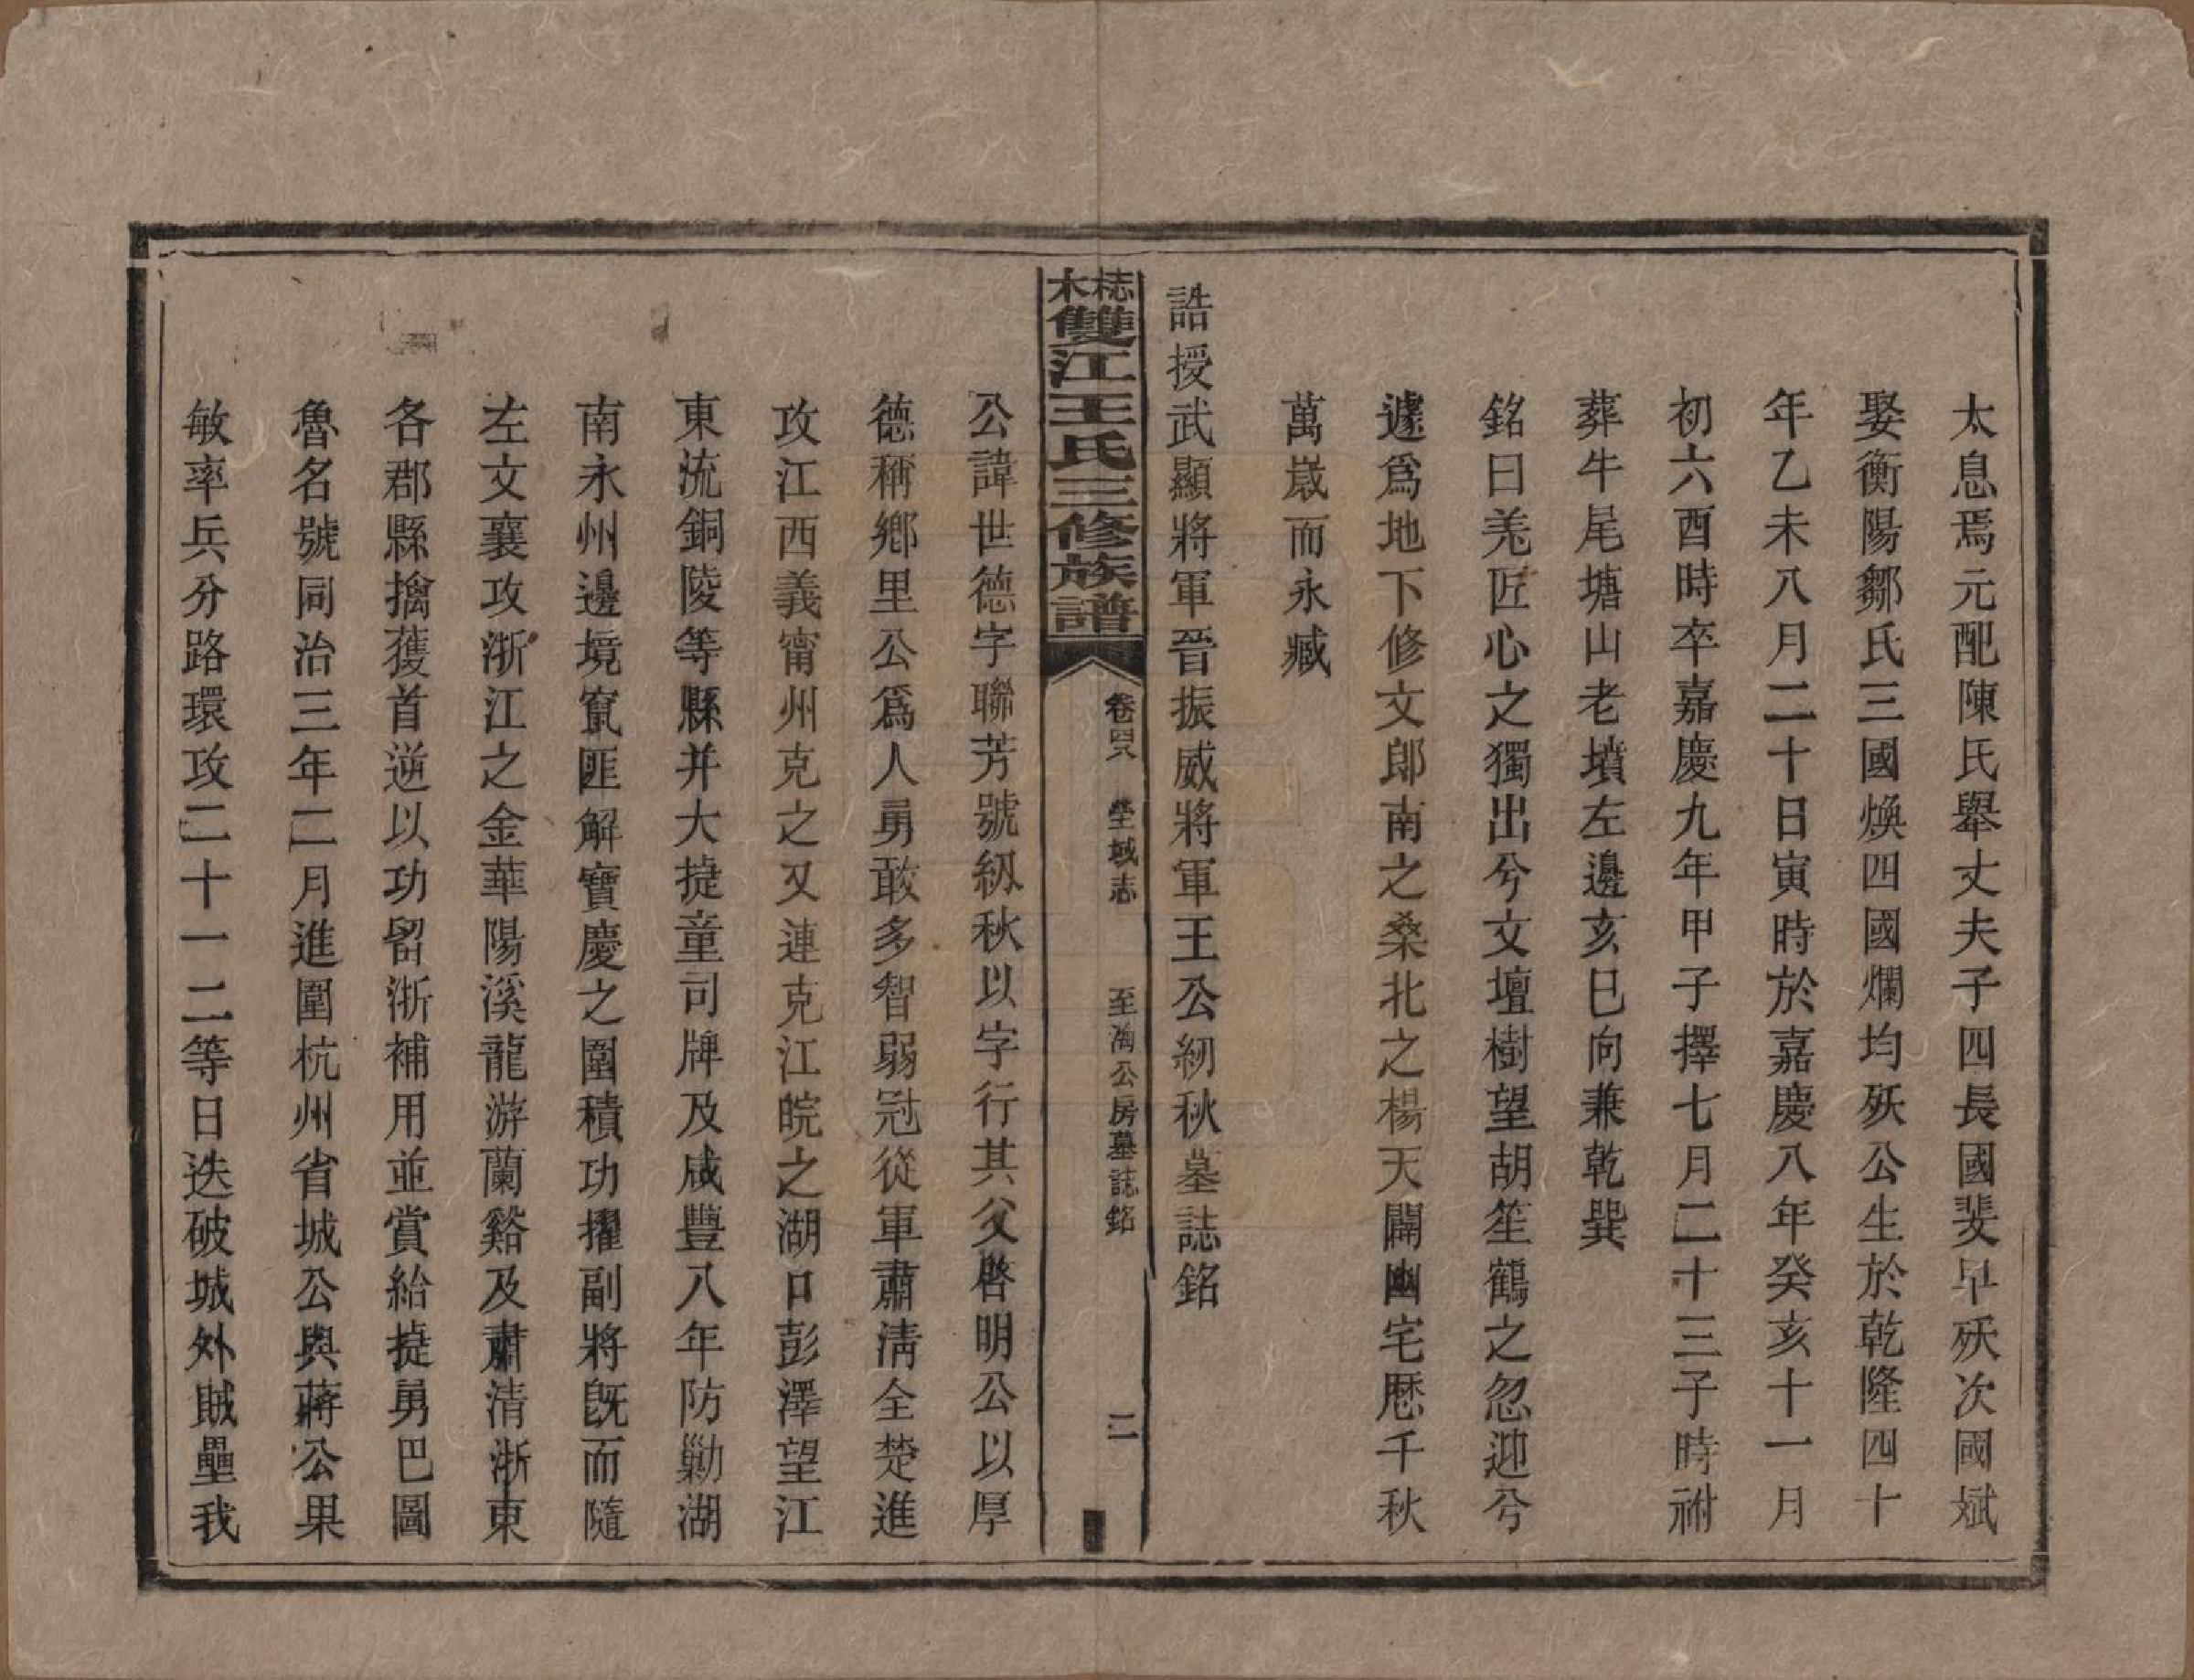 太息焉元配陳氏舉丈夫子四長國斐早殀次國斌
娶衡陽鄒氏三國煥四國爛均殀公生於乾隆四十
年乙未八月二十日寅時於嘉慶八年癸亥十一月
初六酉時卒嘉慶九年甲子擇七月二十三子時祔
葬牛尾塘山老墳左邊亥巳向兼乾巽
銘曰羌匠心之獨出兮文壇樹望胡笙鶴之忽迎兮
遽爲地下修文郎南之桑北之楊天闢幽宅厯千秋
萬嵗而永臧
誥授武顯將軍晉振威將軍王公紉秋墓誌銘
梽木
雙江王氏三修族譜
卷四八
塋域志
至 公房墓誌銘
二
公諱世德字聯芳號紉秋以字行其父啓明公以厚
德稱鄉里公爲人勇敢多智弱冠從軍肅淸全楚進
攻江西義甯州克之又連克江皖之湖口彭澤望江
東流銅陵等縣并大㨗童司牌及咸豐八年防勦湖
南永州邊境竄匪解寶慶之圍積功擢副將旣而隨
左文襄攻浙江之金華陽溪龍游蘭谿及肅清浙東
各郡縣擒獲首逆以功留浙補用並賞給㨗勇巴圖
魯名號同治三年二月進圍杭州省城公與蔣公果
敏率兵分路環攻二十一二等日迭破城外賊壘我